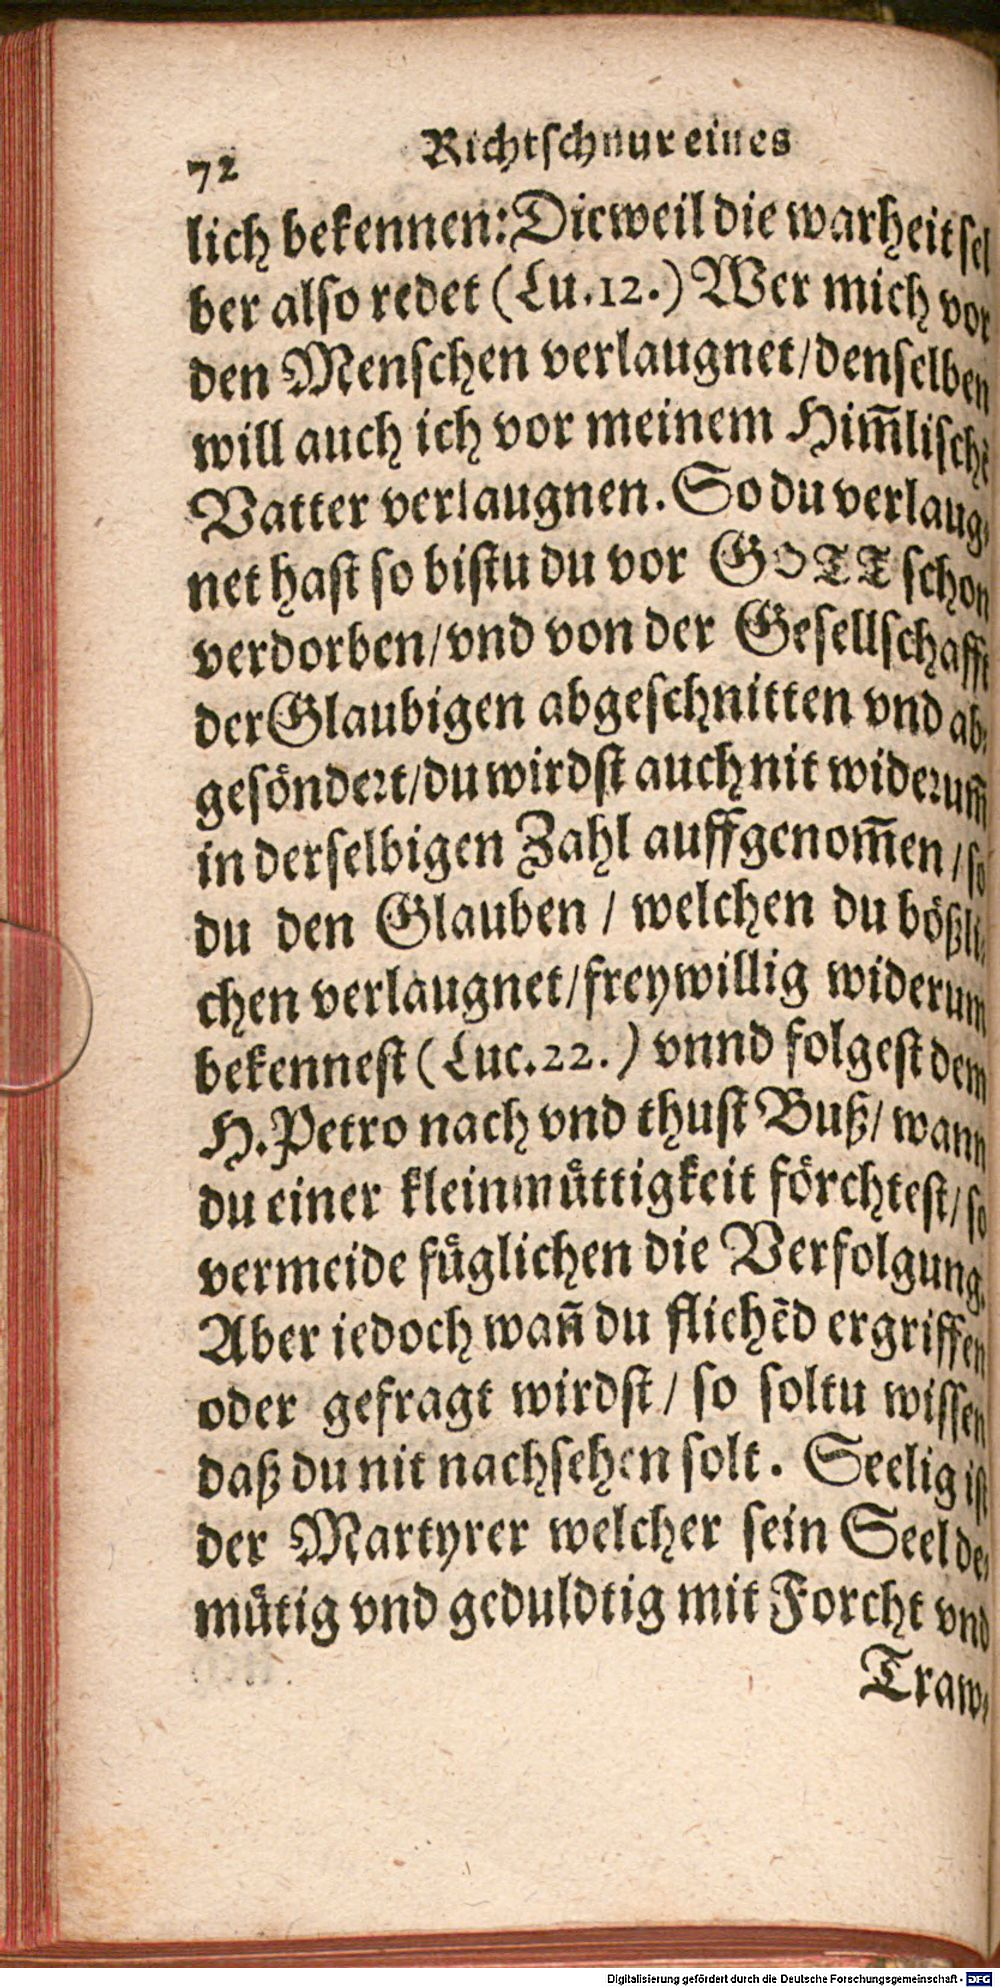 72 Richtschnur eines
lich bekennen: Dieweil die warheit sel
ber also redet (Lu. 12.) Wer mich vor
den Menschen verlaugnet/denselben
will auch ich vor meinem Him̄lischē
Vatter verlaugnen. So du verlaug⸗
net hast so bistu du vor GOTT schon
verdorben/vnd von der Gesellschafft
der Glaubigen abgeschnitten vnd ab⸗
gesöndert/du wirdst auch nit widerum̄
in derselbigen Zahl auffgenom̄en/so
du den Glauben / welchen du bößli⸗
chen verlaugnet/freywillig widerum
bekennest (Luc. 22.) vnnd folgest dem
H. Petro nach vnd thust Buß/ wann
du einer kleinmüttigkeit förchtest/so
vermeide füglichen die Verfolgung.
Aber iedoch wan̄ du fliehēd ergriffen
oder gefragt wirdst/ so soltu wissen
daß du nit nachsehen solt. Seelig ist
der Martyrer welcher sein Seel de⸗
mütig vnd geduldtig mit Forcht vnd
Traw⸗
Digitalisierung gefördert durch die Deutsche Forschungsgemeinschaft - DFG